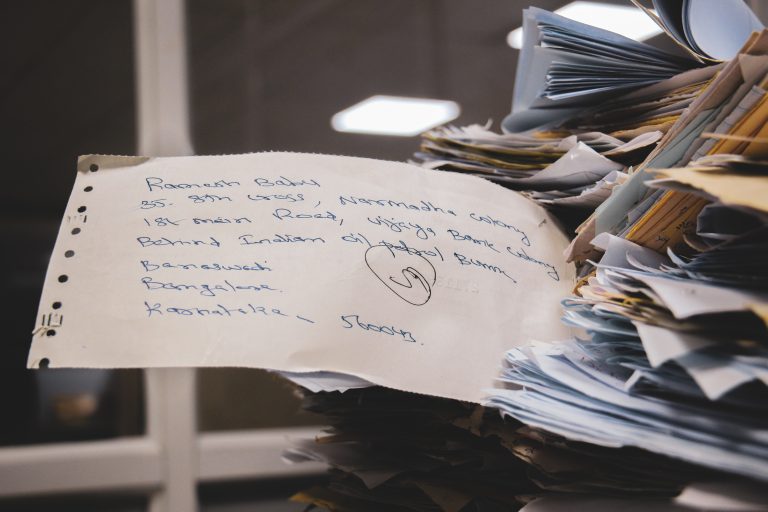 Ramesh Babu
35. 8th Cross, Narmadha Colony
1st main Road, Vijaya Bank Colony
Behind Indian oil petrol Bunk
Banaswadi
Bangalore.
Karnataka, 560043.